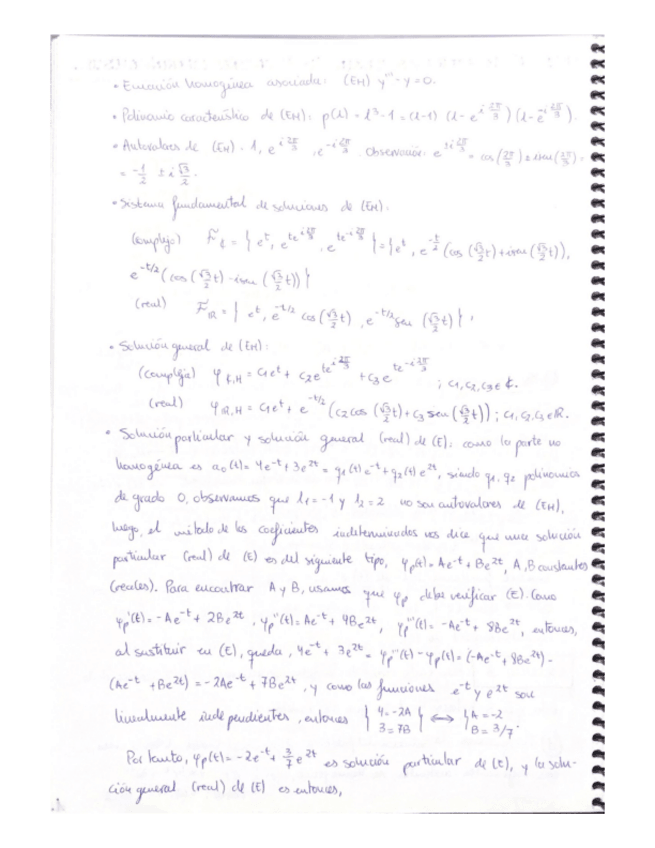 • Ecuación homogénea asociada: (EH) y''' - y = 0.
• Polinomio característico de (EH): p(λ) = λ³ - 1 = (λ-1) (λ - e^{i 2π/3}) (λ - e^{-i 2π/3}).
• Autovalores de (EH): 1, e^{i 2π/3}, e^{-i 2π/3}. Observación: e^{±i 2π/3} = cos(2π/3) ± i sen(2π/3) =
= -1/2 ± i √3/2.
• Sistema fundamental de soluciones de (EH):
(complejo) F_ℂ = { e^t, e^{t e^{i 2π/3}}, e^{t e^{-i 2π/3}} } = { e^t, e^{-t/2} (cos(√3/2 t) + i sen(√3/2 t)),
e^{-t/2} (cos(√3/2 t) - i sen(√3/2 t)) }
(real) F_ℝ = { e^t, e^{-t/2} cos(√3/2 t), e^{-t/2} sen(√3/2 t) },
• Solución general de (EH):
(compleja) φ_{ℂ,H} = c₁e^t + c₂e^{t e^{i 2π/3}} + c₃e^{t e^{-i 2π/3}} ; c₁, c₂, c₃ ∈ ℂ.
(real) φ_{ℝ,H} = c₁e^t + e^{-t/2} (c₂ cos(√3/2 t) + c₃ sen(√3/2 t)) ; c₁, c₂, c₃ ∈ ℝ.
• Solución particular y solución general (real) de (E): como la parte no
homogénea es a₀(t) = 4e^{-t} + 3e^{2t} = q₁(t) e^{-t} + q₂(t) e^{2t}, siendo q₁, q₂ polinomios
de grado 0, observamos que λ₁ = -1 y λ₂ = 2 no son autovalores de (EH),
luego, el método de los coeficientes indeterminados nos dice que una solución
particular (real) de (E) es del siguiente tipo, φp(t) = Ae^{-t} + Be^{2t}, A, B constantes
(reales). Para encontrar A y B, usamos que φp debe verificar (E). Como
φp'(t) = -Ae^{-t} + 2Be^{2t}, φp''(t) = Ae^{-t} + 4Be^{2t}, φp'''(t) = -Ae^{-t} + 8Be^{2t}, entonces,
al sustituir en (E), queda, 4e^{-t} + 3e^{2t} = φp'''(t) - φp(t) = (-Ae^{-t} + 8Be^{2t}) -
(Ae^{-t} + Be^{2t}) = -2Ae^{-t} + 7Be^{2t}, y como las funciones e^{-t} y e^{2t} son
linealmente independientes, entonces { 4 = -2A, 3 = 7B ↔ { A = -2, B = 3/7.
Por tanto, φp(t) = -2e^{-t} + 3/7 e^{2t} es solución particular de (E), y la solu-
ción general (real) de (E) es entonces,